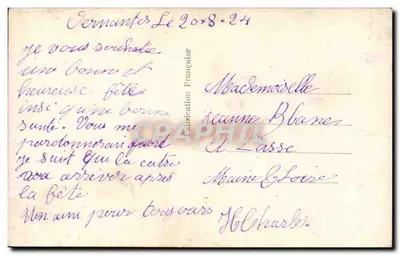 Vernantes Le 20-8-24
je vous souhaite
une bonne et
heureuse fête
insi qu'une bonne
santé. Vous me
pardonnerai quand
je sait que la cate
vas arriver apres
la fête
Un ami pour toujours
H Charles
Fabrication Française
Mademoiselle
Jeanne Blanes
A Lasse
Maine & Loire